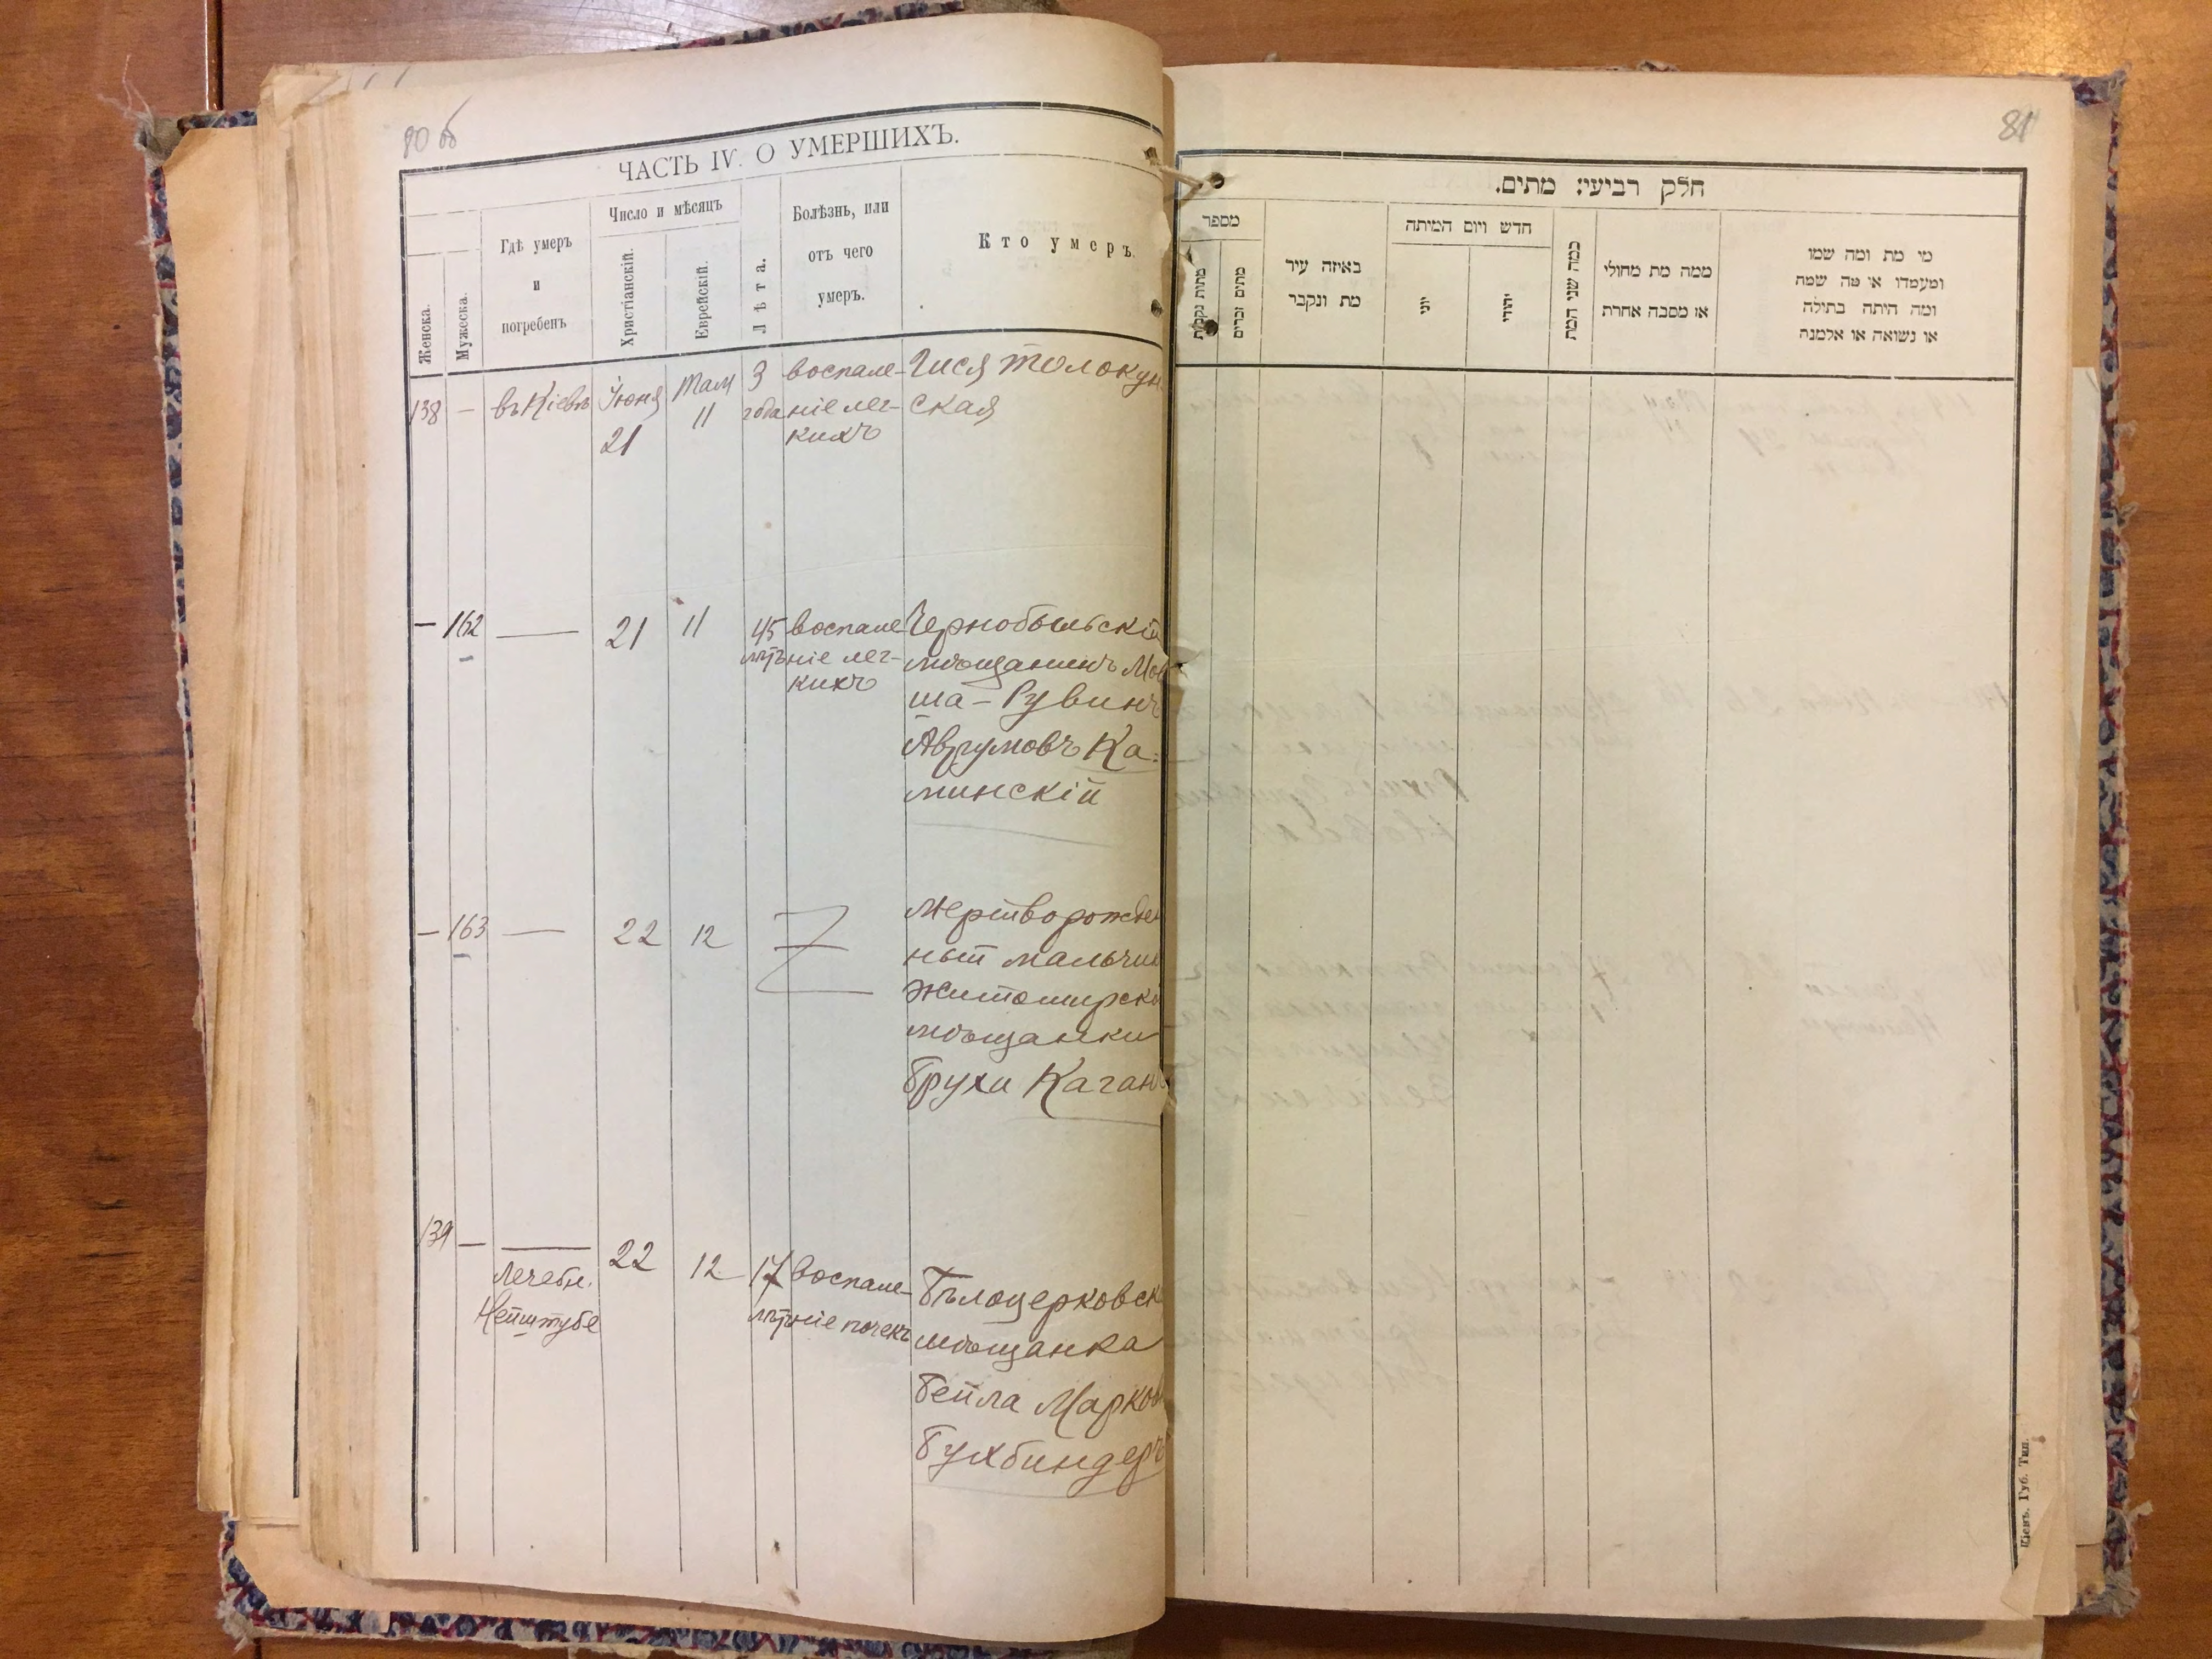 80 об
ЧАСТЬ IV. О УМЕРШИХЪ.
Женска.
Мужеска.
Гдѣ умеръ
и
погребенъ
Число и мѣсяцъ
Христіанскій.
Еврейскій.
Лѣта.
Болѣзнь, или
отъ чего
умеръ.
Кто умеръ.
138 — въ Кіевѣ Іюня 21 Там 11 3 года
воспале-
ніе лег-
кихъ
Гися Толокун
ская
— 162 — 21 11 45 лѣтъ
воспале
ніе лег-
кихъ
Чернобыльскій
мѣщанинъ Мов
ша-Рувинъ
Аврумовъ Ка-
минскій
— 163 — 22 12
Мертворожден
ный мальчик
Житомирской
мѣщанки
Брухи Каганъ
139 — — 22 12 17 лѣтъ
Лечебн.
воспале-
ніе почекъ
Бѣлоцерковск
мѣщанка
Бейла Марков
Бухбиндеръ
81
חלק רביעי: מתים.
מספר
מתות נקבות
מתים זכרים
באיזה עיר
מת ונקבר
חדש ויום המיתה
יוני
יהודי
כמה שני המת
ממה מת מחולי
או מסבה אחרת
מי מת ומה שמו
ומעמדו או מה שמה
ומה היתה בתולה
או נשואה או אלמנה
Кіевъ. Губ. Тип.